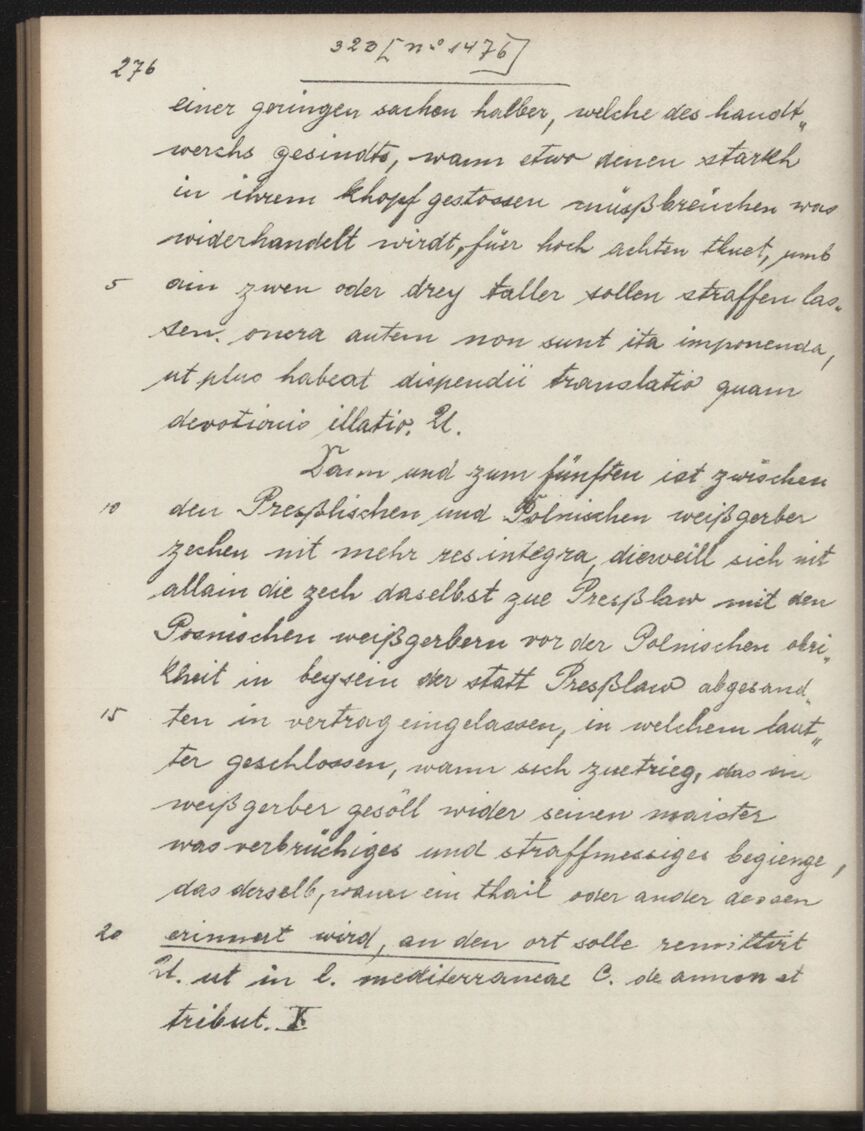 323 [nº 1476]
276
einer geringen sachen halber, welche des handt„
werchs gesindts, wann etwo denen starkh
in ihrem khopf gestossen müsßbreüchen was
widerhandelt wirdt, für hoch achten thuet, umb
5 ain zwen oder drey taller sollen straffen las„
sen. onera autem non sunt ita imponenda,
ut plus habeat dispendii translatio quam
devotionis illatio. U.
Dann und zum fünften ist zwischen
10 den Presßlischen und Polnischen weißgerber
zechen nit mehr res integra, dieweill sich nit
allain die zech daselbst zue Presßlaw mit den
Posnischen weißgerbern vor der Polnischen obri„
kheit in beysein der statt Presßlaw abgesand„
15 ten in vertrag eingelassen, in welchem laut„
ter geschlossen, wann sich zuetrieg, das ein
weißgerber gesöll wider seinen maister
was verbrüchiges und straffmessiges begienge,
das derselb, wann ein thail oder ander dessen
20 erinnert wird, an den ort solle remittirt
U. ut in l. mediterraneae C. de annon et
tribut. X